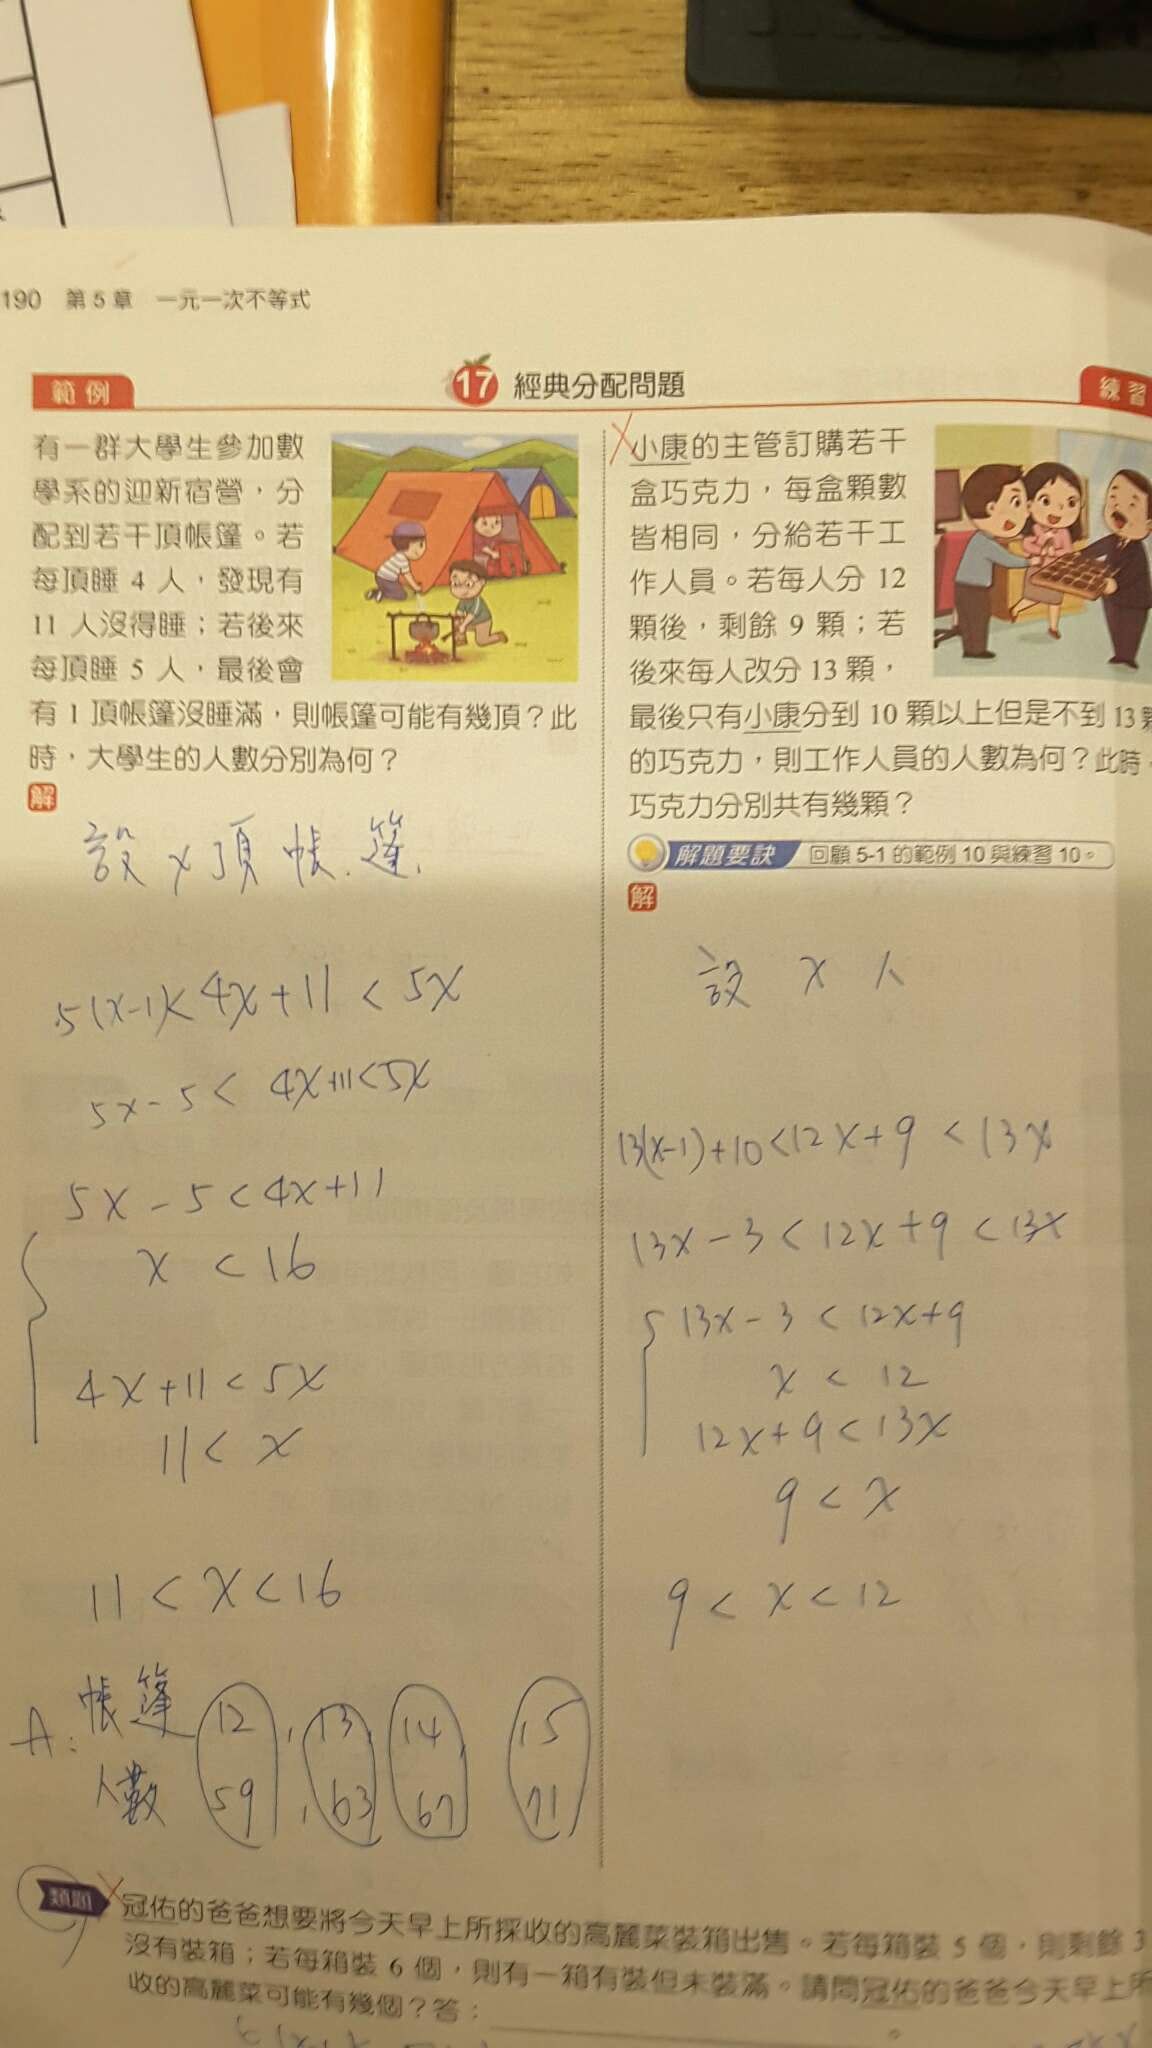 190 第5章 一元一次不等式
範例
17 經典分配問題
練習
有一群大學生參加數
學系的迎新宿營，分
配到若干頂帳篷。若
每頂睡 4 人，發現有
11 人沒得睡；若後來
每頂睡 5 人，最後會
有 1 頂帳篷沒睡滿，則帳篷可能有幾頂？此
時，大學生的人數分別為何？
解
設 x 頂帳篷
5(x-1)<4x+11<5x
5x-5<4x+11<5x
5x-5<4x+11
x<16
4x+11<5x
11<x
11<x<16
A:帳篷 12, 13, 14, 15
人數 59, 63, 67, 71
小康的主管訂購若干
盒巧克力，每盒顆數
皆相同，分給若干工
作人員。若每人分 12
顆後，剩餘 9 顆；若
後來每人改分 13 顆，
最後只有小康分到 10 顆以上但是不到 13 顆
的巧克力，則工作人員的人數為何？此時，
巧克力分別共有幾顆？
解題要訣 回顧 5-1 的範例 10 與練習 10。
解
設 x 人
13(x-1)+10<12x+9<13x
13x-3<12x+9<13x
13x-3<12x+9
x<12
12x+9<13x
9<x
9<x<12
類題 冠佑的爸爸想要將今天早上所採收的高麗菜裝箱出售。若每箱裝 5 個，則剩餘 3
沒有裝箱；若每箱裝 6 個，則有一箱有裝但未裝滿。請問冠佑的爸爸今天早上所
收的高麗菜可能有幾個？答：